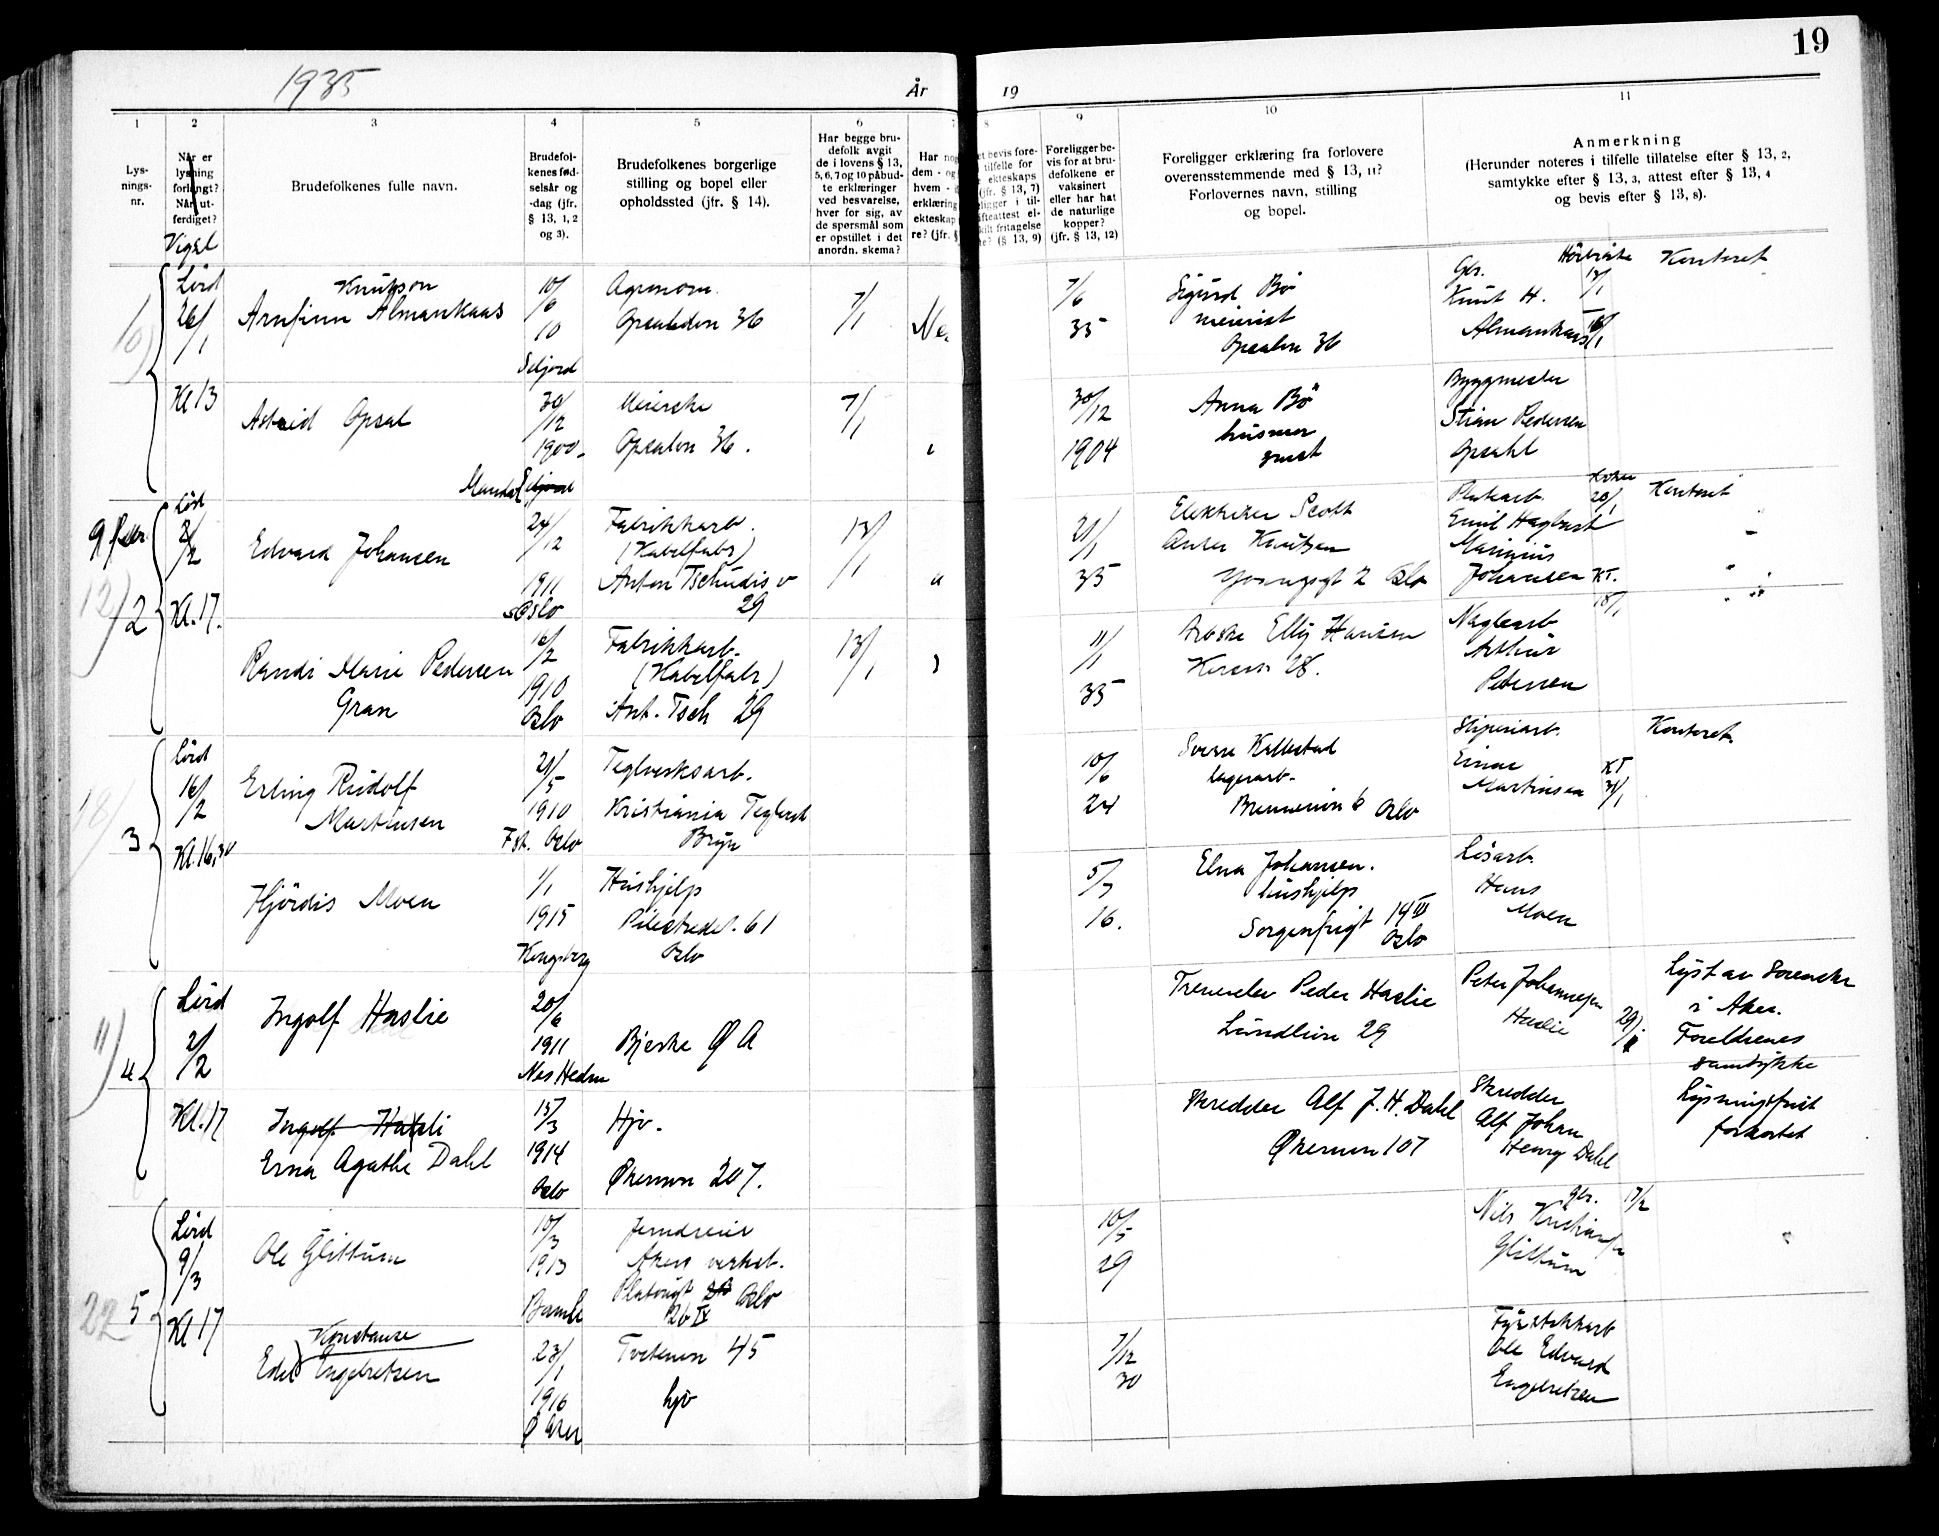 19
1935
År
19
1
2
3
4
5
6
7
8
9
10
11
Lys-
nings-
nr.
Når er
lysning
forlangt?
Når ut-
ferdiget?
Vigsl
Brudefolkenes fulle navn.
Brudefol-
kenes fød-
selsår og
-dag (jfr.
§ 13, 1, 2
og 3).
Brudefolkenes borgerlige
stilling og bopel eller
opholdssted (jfr. § 14).
Har begge bru-
defolk avgit
de i lovens § 13,
5, 6, 7 og 10 påbud-
te erklæringer
ved besvarelse,
hver for sig, av
de spørsmål som
er opstillet i det
anordn. skema?
Har nog
dem - og
hvem -
erklæring
ekteskap
re? (jfr. §
et bevis fore-
tilfelle for
ekteskaps
(jfr. § 13, 7)
ligger i til-
ifteattest el-
kilt fritagelse
te? (§ 13, 9)
Foreligger be-
vis for at bru-
defolkene er
vaksinert
eller har hat
de naturlige
kopper?
(jfr. § 13, 12)
Foreligger erklæring fra forlovere
overensstemmende med § 13, 11?
Forlovernes navn, stilling
og bopel.
Anmerkning
(Herunder noteres i tilfelle tillatelse efter § 13, 2,
samtykke efter § 13, 3, attest efter § 13, 4
og bevis efter § 13, 8).
Lörd
26/1
Kl 13
Knutson
Arnfinn Almankaas
10/6
10
Seljord
Agronom
Opsalvn 36
7/1
7/6
35
Sigurd Bö
meierist
Opsalvn 36
Gbr.
Knut H.
Almankaas
16/1
Kontoret
Astrid Opsal
30/12
1900
Mandal
Meierske
Opsalvn 36.
7/1
30/12
1904
Anna Bö
husmor
smst
Byggmester
Stian Pedersen
Opsahl
12)
2
Lörd
2/2
Kl. 17.
Edvard Johansen
24/12
1911
Oslo
Fabrikkarb.
(Kabelfabr)
Anton Tschudis v
29
13/1
"
21/1
35
Elektriker Scott
Knutsen
Oslo
Platearb.
Emil Hagbart
Marinius
Johansen
20/1
Kontoret
KT.
18/1
Randi Marie Pedersen
Gran
16/2
1910
Oslo
Fabrikkarb.
(Kabelfabr)
Ant. Tsch 29
13/1
11/1
35
Elly Hansen
28.
Naglearb
Arthur
Petersen
18/
3
Lörd
16/2
Kl. 16,30
Erling Rudolf
Martinsen
21/5
1910
Oslo
Teglverksarb.
Kristiania Teglverk
Bryn
10/6
24
Sverre Kallestad
lagerarb.
Oslo
Sliperiarb.
Einar
Martinsen
KT
31/1
Kontoret.
Hjördis Moen
1/1
1915
Kongsberg
Hushjelp
Pilestredet. 61
Oslo
5/7
16.
Elna Johansen.
hushjelp
Sorgenfrigt 14 III
Oslo
Lösarb.
Hans
Moen
11/
4
Lörd
2/2
Kl. 17
Ingolf Haslie
20/6
1911
Nes Hedm
Bjerke Ø A
Peder Haslie
Lundlien 29
Peter Johannesen
Haslie
29/1
Lyst av sorenskr
i Aker.
Foreldrenes
samtykke
Ingolf Hasli
Erna Agathe Dahl
15/3
1914
Oslo
Hjv.
Økernvn 207.
Skredder Alf J. H. Dahl
Økernvn 107
Skredder
Alf Johan
Henry Dahl
Lysningsfrist
forkortet
22
5
Lörd
9/3
Kl 17
Ole Glittum
10/3
1913
Bamle
Jerndreier
Akers verksted.
Platougt Oslo
26 IV
10/5
29
Gbr.
Nils Kristian
Glittum
17/2
Konstanse
Edel Engebretsen
23/1
1916
Ø Aker
Tvetenvn 45
hjv
7/12
30
Fyrstikkarb
Ole Edvard
Engebretsen